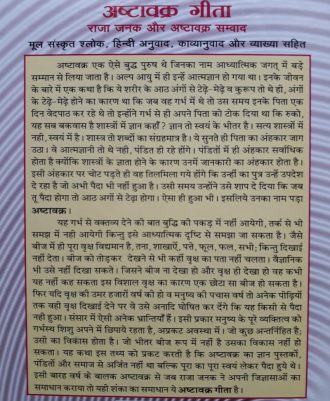 अष्टावक्र गीता
राजा जनक और अष्टावक्र सम्वाद
मूल संस्कृत श्लोक, हिन्दी अनुवाद, काव्यानुवाद और व्याख्या सहित
अष्टावक्र एक ऐसे बुद्ध पुरुष थे जिनका नाम आध्यात्मिक जगत् में बड़े
सम्मान से लिया जाता है। अल्प आयु में ही इन्हें आत्मज्ञान हो गया था। इनके जीवन
के बारे में एक कथा है कि ये शरीर के आठ अंगों से टेढ़े-मेढ़े व कुरूप तो थे ही, अंगों
के टेढ़े-मेढ़े होने का कारण था कि जब वह गर्भ में थे तो उस समय इनके पिता एक
दिन वेदपाठ कर रहे थे तो इन्होंने गर्भ से ही अपने पिता को टोक दिया था कि रुको,
यह सब बकवास है शास्त्रों में ज्ञान कहाँ? ज्ञान तो स्वयं के भीतर है। सत्य शास्त्रों में
नहीं, स्वयं में है। शास्त्र तो शब्दों का संग्रहमात्र है। ये सुनते ही पिता का अहंकार जाग
उठा। वे आत्मज्ञानी तो थे नहीं, पंडित ही रहे होंगे। पंडितों में ही अहंकार सर्वाधिक
होता है क्योंकि शास्त्रों के ज्ञाता होने के कारण उनमें जानकारी का अहंकार होता है।
इसी अहंकार पर चोट पड़ते ही वह तिलमिला गये होंगे कि उन्हीं का पुत्र उन्हें उपदेश
दे रहा है जो अभी पैदा भी नहीं हुआ है। उसी समय उन्होंने उसे शाप दे दिया कि जब
तू पैदा होगा तो आठ अंगों से टेढ़ा होगा। ऐसा ही हुआ भी। इसलिये उनका नाम पड़ा
अष्टावक्र।
यह गर्भ से वक्तव्य देने की बात बुद्धि की पकड़ में नहीं आयेगी, तर्क से भी
समझ में नहीं आयेगी किन्तु इसे आध्यात्मिक दृष्टि से समझा जा सकता है। जैसे
बीज में ही पूरा वृक्ष विद्यमान है, तना, शाखाऐं, पत्ते, फूल, फल, सभी; किन्तु दिखाई
नहीं देता। बीज को तोड़कर देखने से भी कहीं वृक्ष का पता नहीं चलता। वैज्ञानिक
भी उसे नहीं दिखा सकते। जिसने बीज ना देखा हो और वृक्ष ही देखा हो वह कभी
यह नहीं कह सकता इस विशाल वृक्ष का कारण एक छोटा सा बीज हो सकता है।
फिर यदि वृक्ष की उमर हजारों वर्ष की हो व मनुष्य की पचास वर्ष तो अनेक पीढ़ियों
तक वही वृक्ष दिखाई देने पर वे उसे अनादि घोषित कर देंगे कि यह किसी से पैदा
नहीं हुआ। संसार में ऐसी अनेक भ्रान्तियाँ हैं। इसी प्रकार मनुष्य के पूरे व्यक्तित्व को
गर्भस्थ शिशु अपने में छिपाये रहता है, अप्रकट अवस्था में। जो कुछ अन्तर्निहित है;
उसी का विकास होता है। जो भीतर बीज रूप में नहीं है उसका विकास हो नहीं
सकता। यह कथा इस तथ्य को प्रकट करती है कि अष्टावक्र का ज्ञान पुस्तकों,
पंडितों और समाज से अर्जित नहीं था बल्कि पूरा का पूरा स्वयं लेकर पैदा हुये थे।
इसी बारह वर्ष के बालक अष्टावक्र से जब राजा जनक ने अपनी जिज्ञासाओं का
समाधान कराया तो यही शंका का समाधान ये अष्टावक्र गीता है।